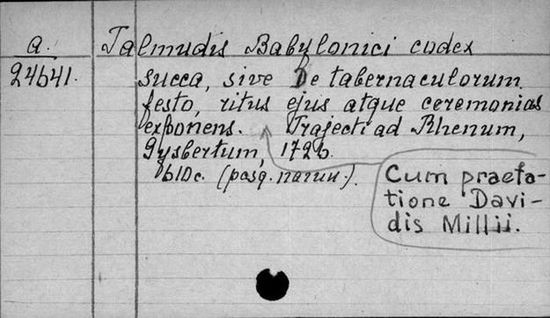 a.
24641.
Talmudis Babylonici codex
succa, sive De tabernaculorum
festo, ritus ejus atque ceremonias
exponens. Trajecti ad Rhenum,
Gysbertum, 1726.
(разд. пагин.).
Cum praefa-
tione Davi-
dis Millii.